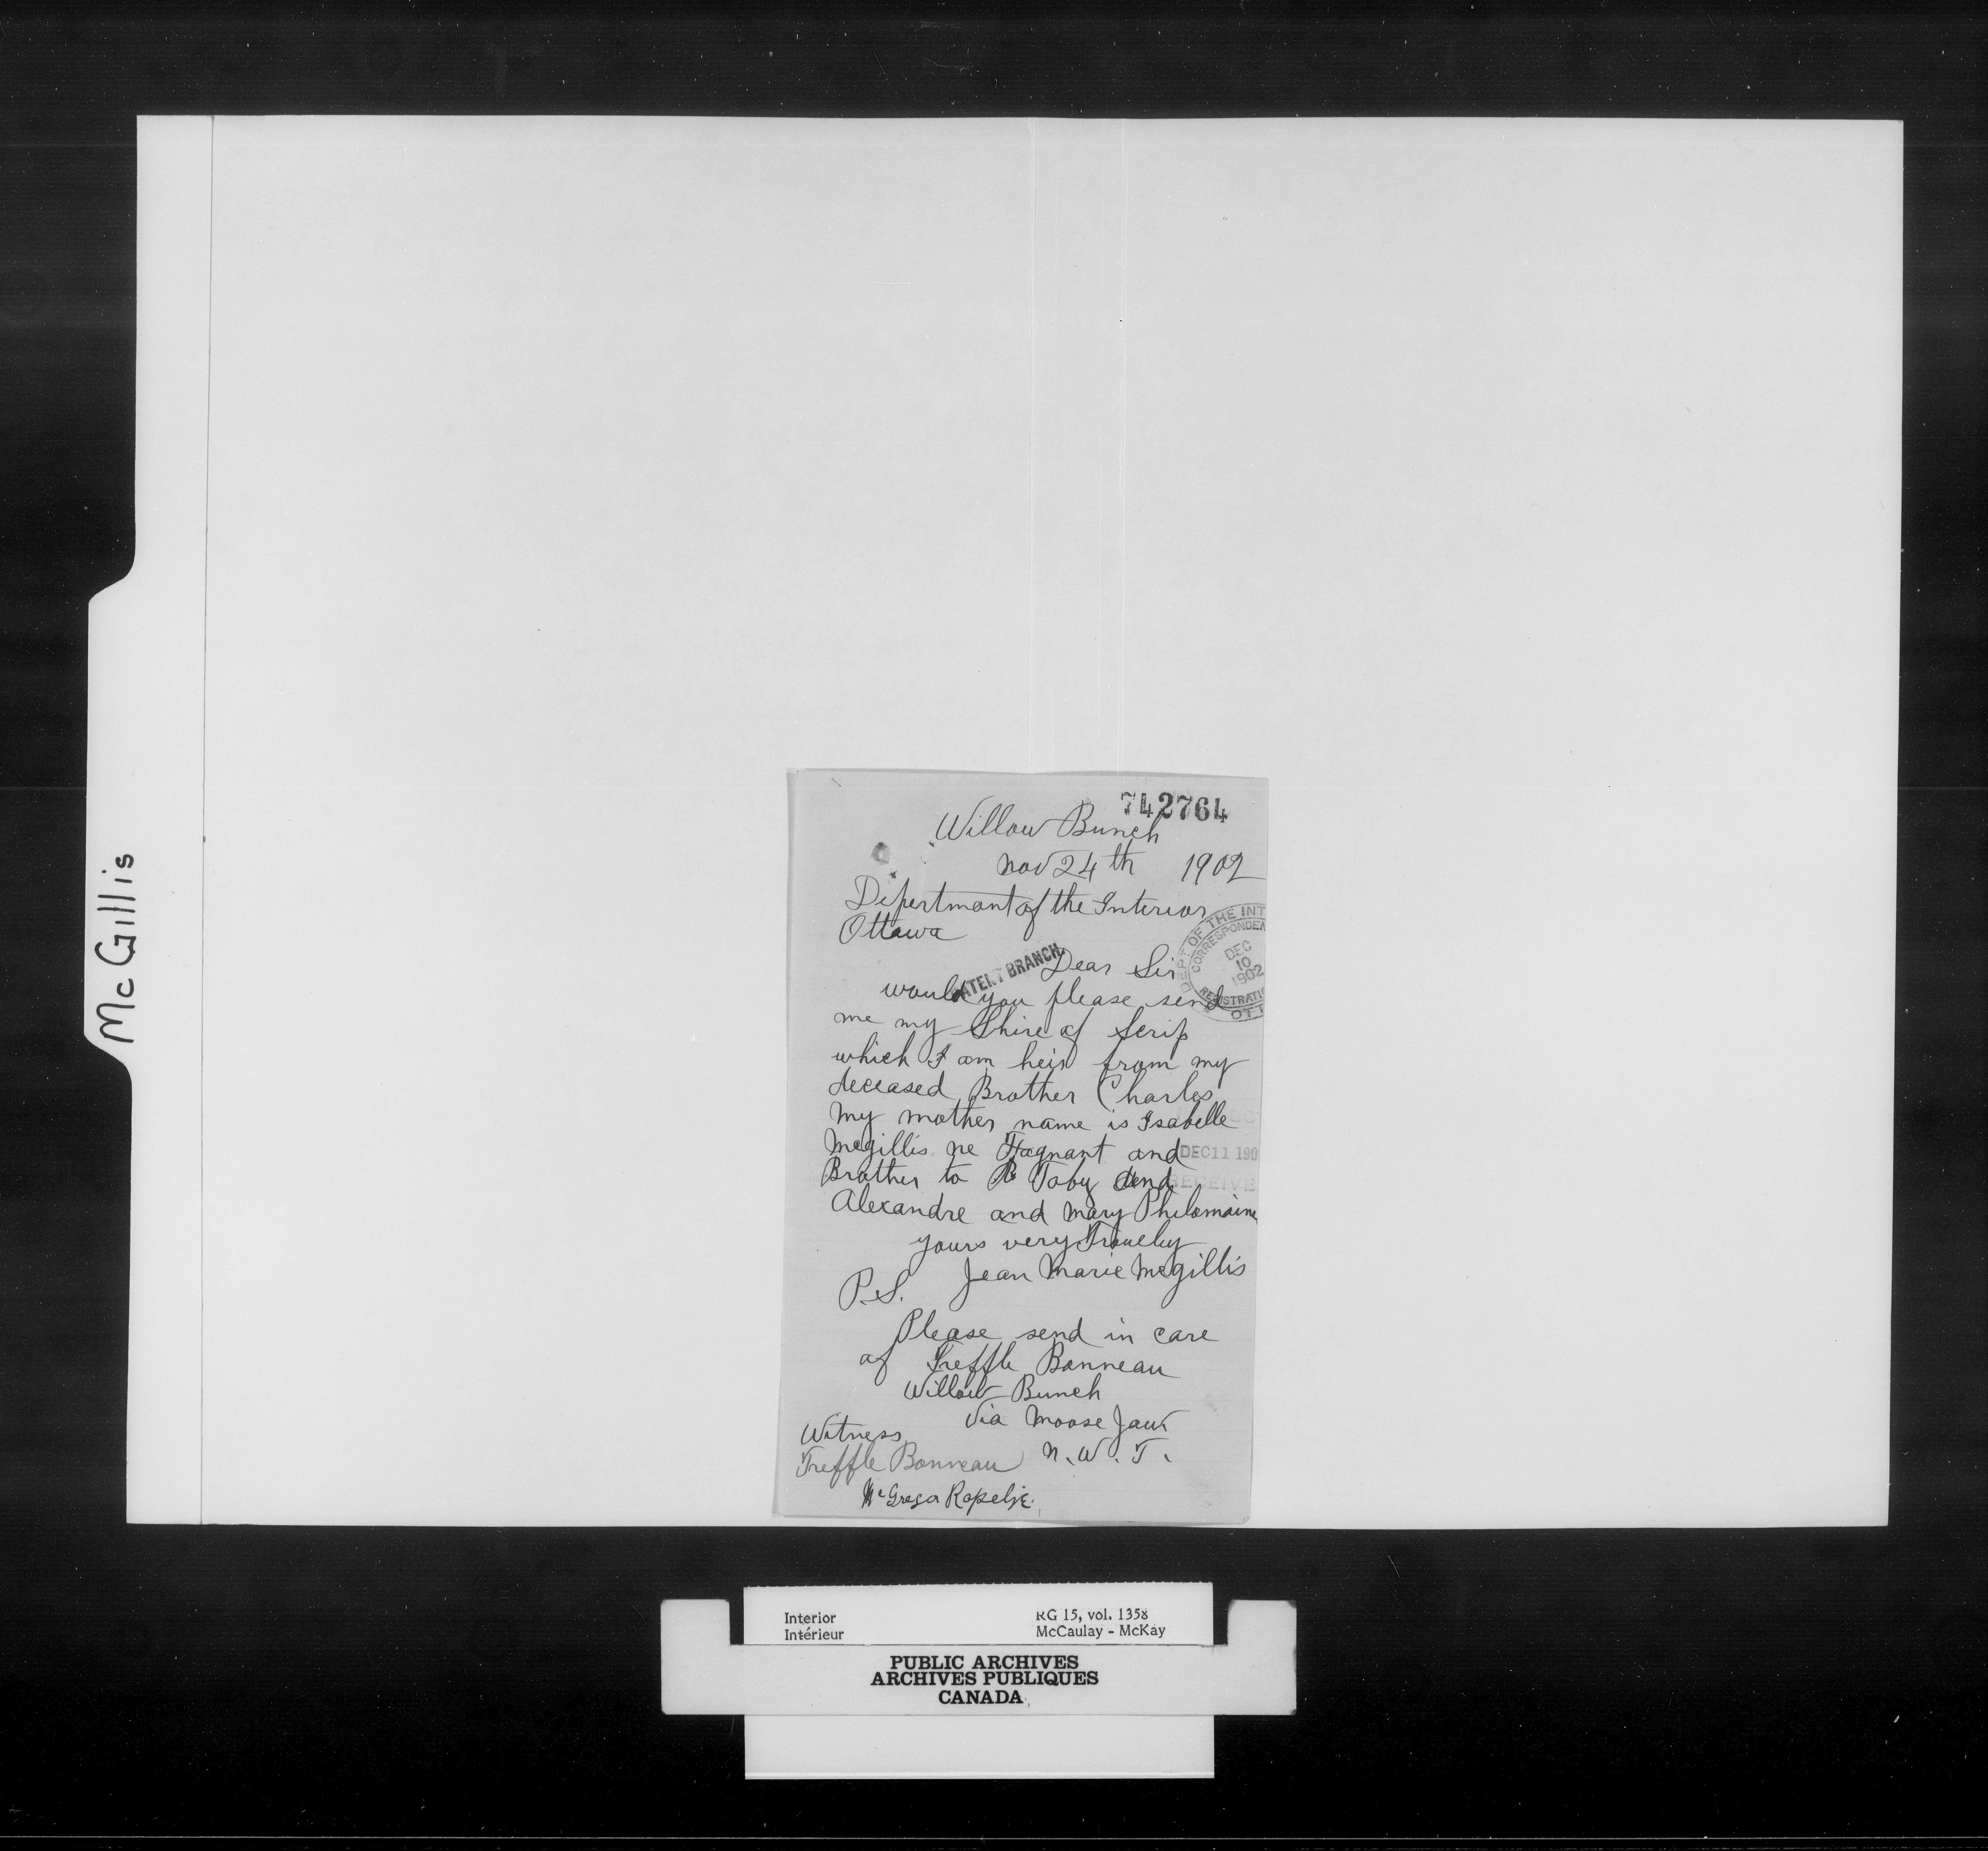 McGillis
742764
Willow Bunch
Nov 24th 1902
Dipertmant of the Interior
Ottawa
DEPT OF THE INT
CORRESPONDEN
DEC
10
1902
REGISTRATI
OT
PATENT BRANCH
Dear Sir
would you please send
me my Shire of Scrip
which I am heir from my
deceased Brother Charles
My mother name is Isabelle
Mcgillis ne Fagnant and
DEC 11 190
Brother to Toby and
RECEIVE
Alexandre and Mary Philomaine
yours very Trouley
Jean Marie Mcgillis
P.S.
Please send in care
of Treffle Bonneau
Willow Bunch
Via Moose Jaw
N. W. T.
Witness
Treffle Bonneau
McGregor Rapelje
Interior
Intérieur
RG 15, vol. 1358
McCaulay - McKay
PUBLIC ARCHIVES
ARCHIVES PUBLIQUES
CANADA